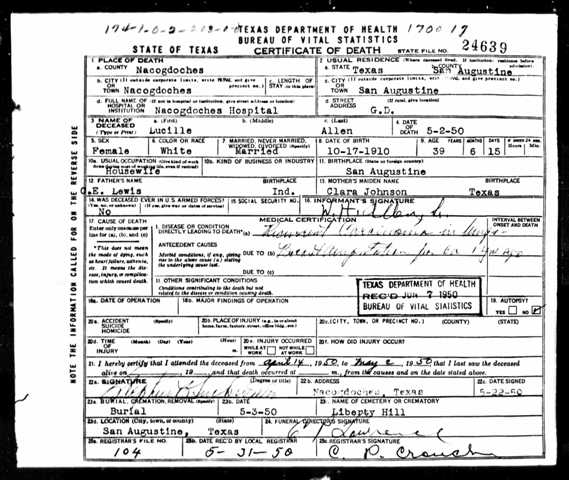 TEXAS DEPARTMENT OF HEALTH
BUREAU OF VITAL STATISTICS
STATE OF TEXAS CERTIFICATE OF DEATH STATE FILE NO. 24639
1 PLACE OF DEATH
a. COUNTY Nacogdoches
2 USUAL RESIDENCE
a. STATE Texas b. COUNTY San Augustine
b. CITY OR TOWN Nacogdoches
c. LENGTH OF STAY
c. CITY OR TOWN San Augustine
d. FULL NAME OF HOSPITAL OR INSTITUTION Nacogdoches Hospital
d. STREET ADDRESS G.D.
3 NAME OF DECEASED (Type or Print)
a. (First) Lucille b. (Middle) c. (Last) Allen
4 DATE OF DEATH 5-2-50
5 SEX Female
6 COLOR OR RACE White
7 MARRIED, NEVER MARRIED, WIDOWED, DIVORCED (Specify) Married
8 DATE OF BIRTH 10-17-1910
9 AGE YEARS 39 MONTHS 6 DAYS 15
10a. USUAL OCCUPATION Housewife
10b. KIND OF BUSINESS OR INDUSTRY
11 BIRTHPLACE (State or foreign country) San Augustine
12 FATHER'S NAME BIRTHPLACE
E. Lewis Ind.
13 MOTHER'S MAIDEN NAME BIRTHPLACE
Clara Johnson Texas
14 WAS DECEASED EVER IN U.S. ARMED FORCES? No
15 SOCIAL SECURITY NO.
16 INFORMANT'S SIGNATURE
17 CAUSE OF DEATH
Enter only one cause per line for (a), (b), and (c)
*This does not mean the mode of dying, such as heart failure, asthenia, etc. It means the disease, injury, or complication which caused death.
MEDICAL CERTIFICATION
INTERVAL BETWEEN ONSET AND DEATH
I. DISEASE OR CONDITION DIRECTLY LEADING TO DEATH*(a) Carcinoma
ANTECEDENT CAUSES
Morbid conditions, if any, giving rise to the above cause (a) stating the underlying cause last.
DUE TO (b)
DUE TO (c)
II OTHER SIGNIFICANT CONDITIONS
Conditions contributing to the death but not related to the disease or condition causing death.
TEXAS DEPARTMENT OF HEALTH
REC'D JUN 7 1950
BUREAU OF VITAL STATISTICS
18a. DATE OF OPERATION
18b. MAJOR FINDINGS OF OPERATION
19. AUTOPSY YES NO
20a. ACCIDENT SUICIDE HOMICIDE (Specify)
20b. PLACE OF INJURY
20c. (CITY, TOWN, OR PRECINCT NO.) (COUNTY) (STATE)
20d. TIME OF INJURY (Month) (Day) (Year) (Hour)
20e. INJURY OCCURRED WHILE AT WORK NOT WHILE AT WORK
20f. HOW DID INJURY OCCUR?
21 I hereby certify that I attended the deceased from April 14, 1950, to May 2, 1950 that I last saw the deceased
alive on 19 and that death occurred at m., from the causes and on the date stated above.
22a. SIGNATURE (Degree or title)
22b. ADDRESS Nacogdoches, Texas
22c. DATE SIGNED 5-22-50
23a. BURIAL, CREMATION, REMOVAL (Specify) Burial
23b. DATE 5-3-50
23c. NAME OF CEMETERY OR CREMATORY Liberty Hill
23d. LOCATION (City, town, or county) (State) San Augustine, Texas
24. FUNERAL DIRECTOR'S SIGNATURE Lawrence
25a. REGISTRAR'S FILE NO. 104
25b. DATE REC'D BY LOCAL REGISTRAR 5-31-50
25c. REGISTRAR'S SIGNATURE C. P. Crouch
NOTE THE INFORMATION CALLED FOR ON THE REVERSE SIDE